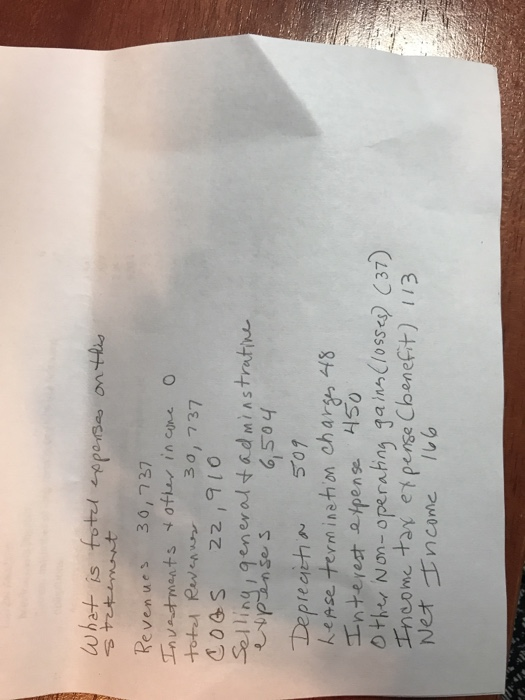 What is total expenses on this
statement
Revenues 30,737
Investments & other income 0
total Revenues 30,737
COGS 22,910
Selling, general & adminstrative
expenses 6,504
Depreciation 509
Lease termination charges 48
Interest expense 450
Other Non-operating gains (losses) (37)
Income tax expense (benefit) 113
Net Income 166